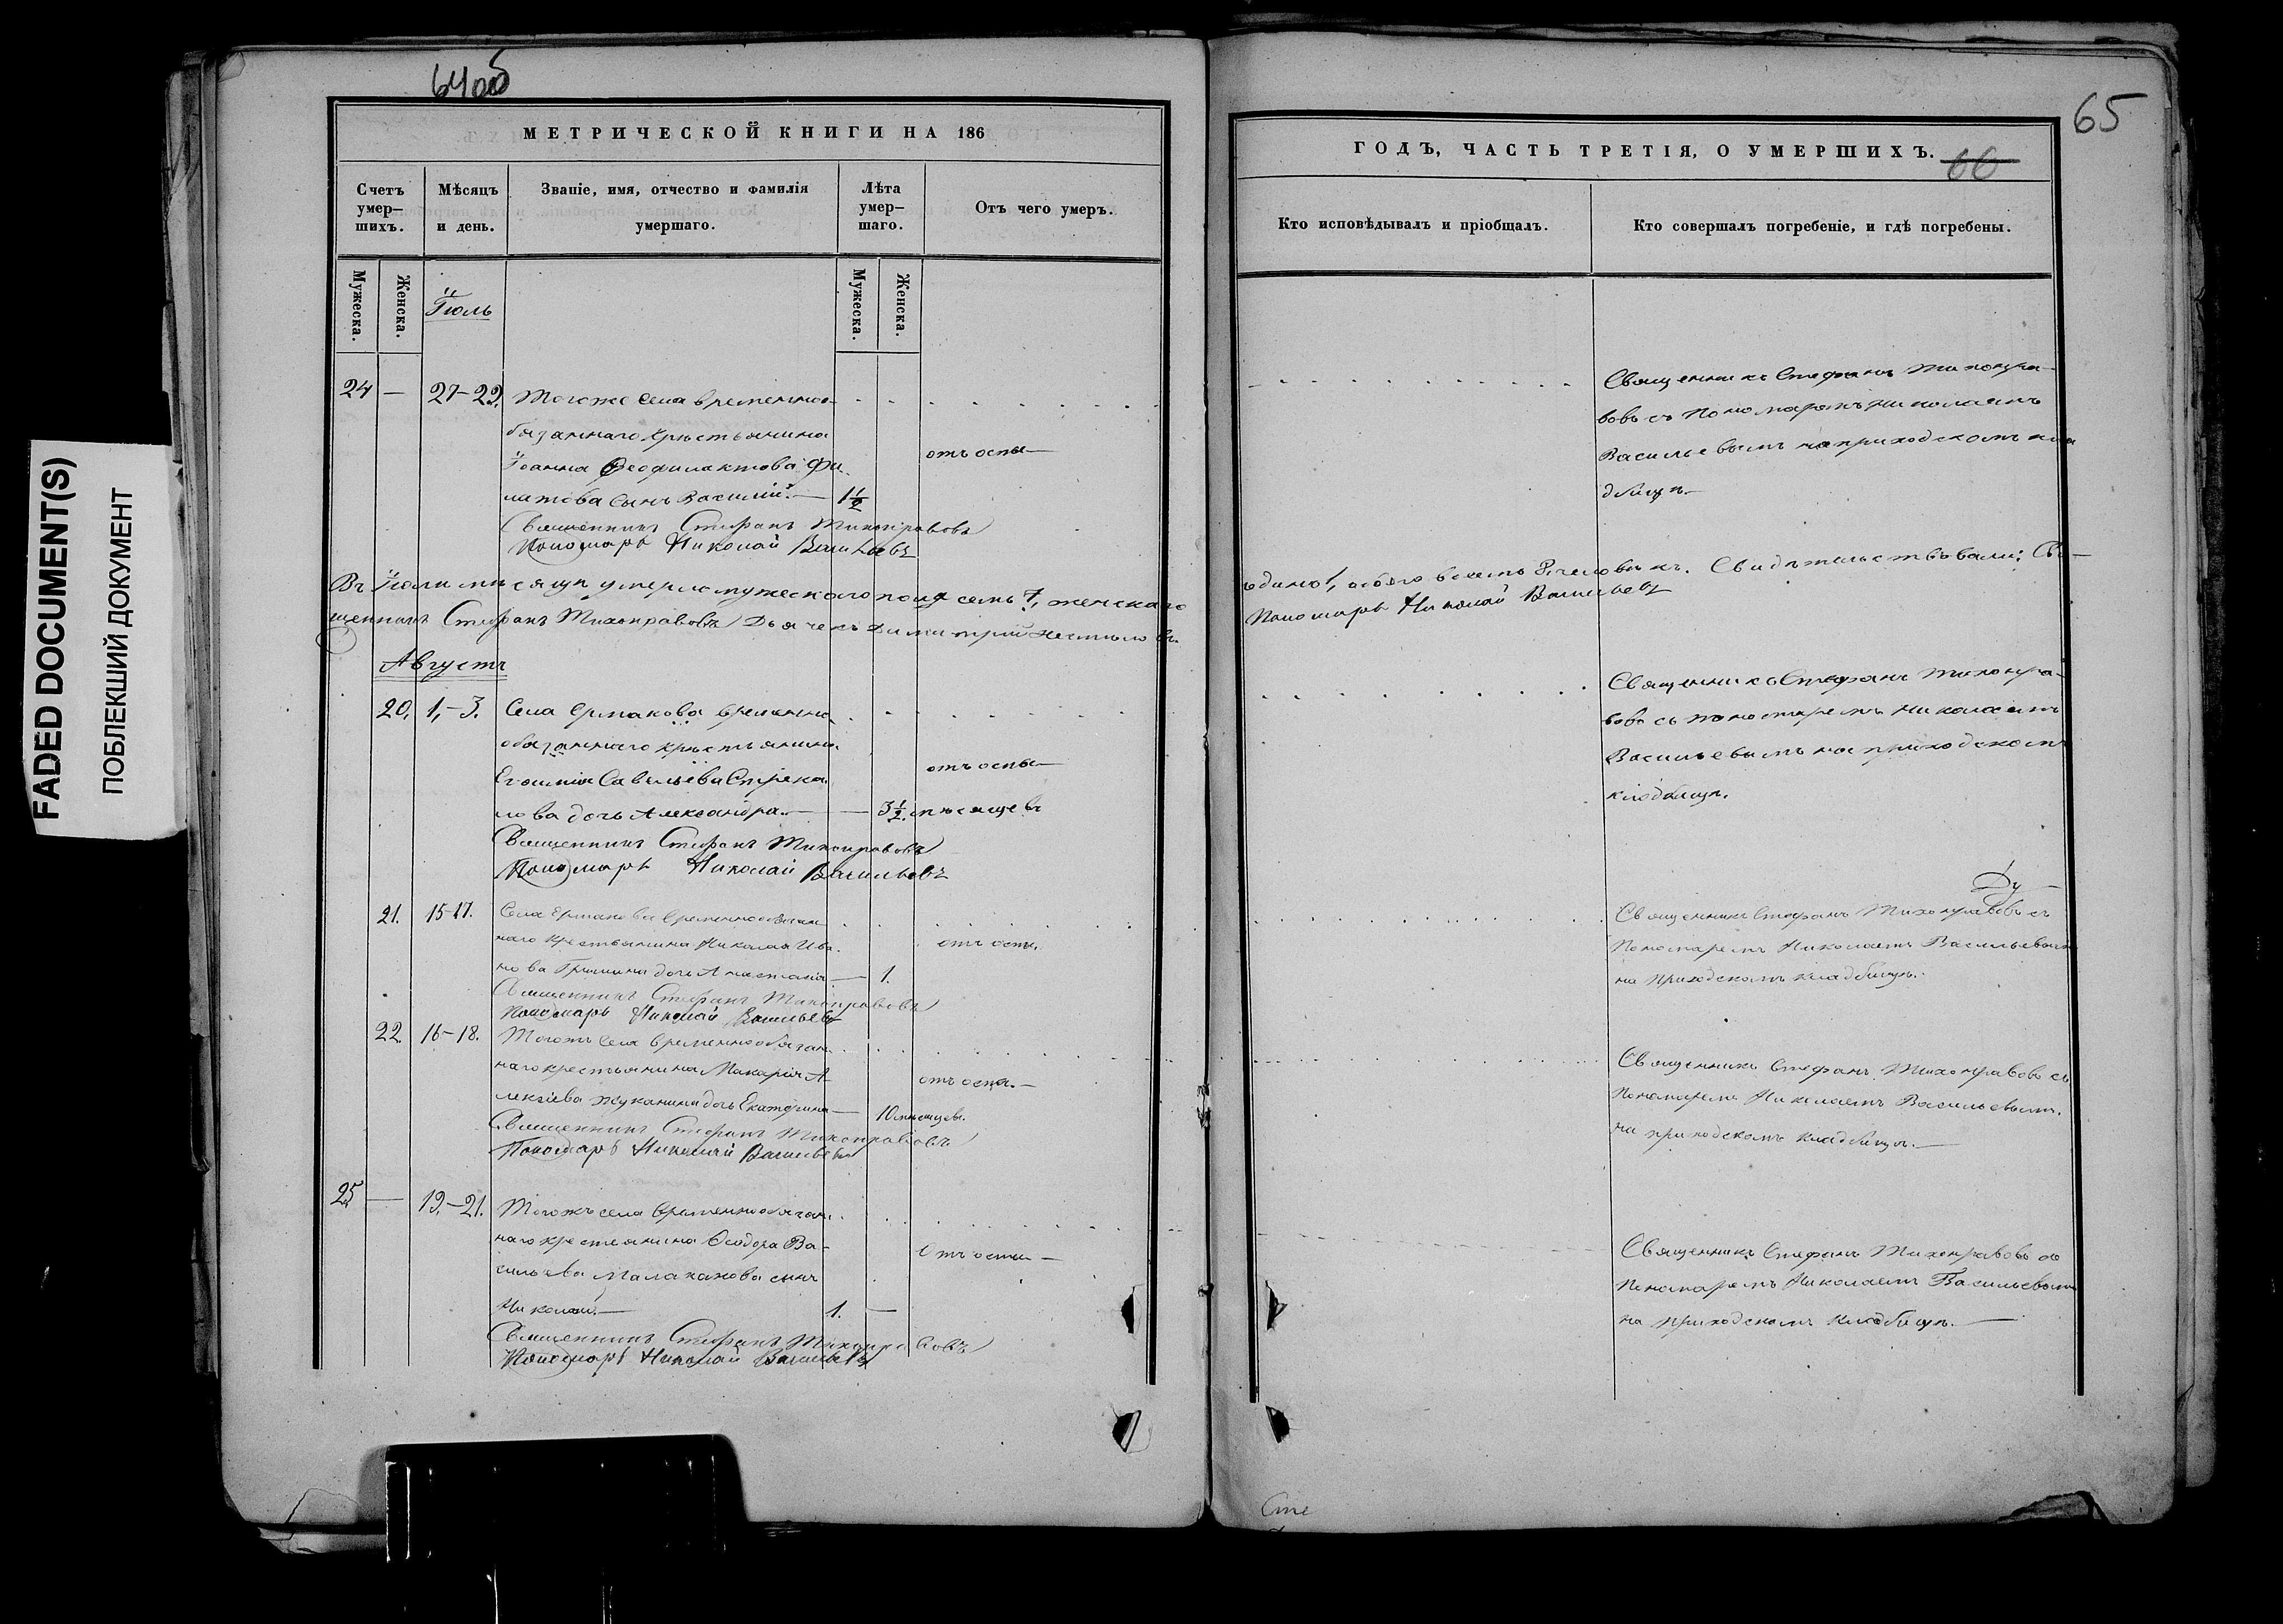 64об
МЕТРИЧЕСКОЙ КНИГИ НА 186
Счетъ умер-
шихъ.
Мѣсяцъ
и день.
Званіе, имя, отчество и фамилія
умершаго.
Лѣта
умер-
шаго.
Отъ чего умеръ.
Мужеска.
Женска.
Мужеска.
Женска.
Іюль
24 — 27-29. Тогоже села временноо-
бязаннаго крестьянина
Іоанна Феофилактова Фи-
латова сынъ Василій.— 1 1/2
отъ оспы—
Священникъ Стефанъ Тихонравовъ
Пономарь Николай Васильевъ
Въ Іюли мѣсяцѣ умерло мужескаго пола семь 7, женскаго
щенникъ Стефанъ Тихонравовъ Дьячекъ Димитрій
Августъ
20. 1,-3. Села Ермакова временно
обязаннаго крестьянина
Савельева Стрека
лова дочь Александра.— — 3 1/2 мѣсяцевъ
отъ оспы—
Священникъ Стефанъ Тихонравовъ
Пономарь Николай Васильевъ
21. 15-17. Села Ермакова временнообязан
наго крестьянина Николая Ива
нова Гришина дочь Анастасія— 1.
отъ оспы.
Священникъ Стефанъ Тихонравовъ
Пономарь Николай Васильевъ
22. 16-18. Тогожъ села временнообязан
наго крестьянина Макарія А
лексѣева Жуканина дочь Екатерина— 10 мѣсяцевъ.
отъ оспы.—
Священникъ Стефанъ Тихонравовъ
Пономарь Николай Васильевъ
25. — 19.-21. Тогожъ села временнообязан
наго крестьянина Ѳеодора Ва-
сильева Малаканова сынъ
Николай.— 1. —
Отъ оспы—
Священникъ Стефанъ Тихонравовъ
Пономарь Николай Васильевъ
65
ГОДЪ, ЧАСТЬ ТРЕТІЯ, О УМЕРШИХЪ.
66
Кто исповѣдывалъ и пріобщалъ.
Кто совершалъ погребеніе, и гдѣ погребены.
Священникъ Стефанъ Тихонра-
вовъ съ Пономаремъ Николаемъ
Васильевымъ на приходскомъ кла
дбищѣ.—
одино 1, обоего всего 8. человѣкъ. Свидѣтельствовали: Свя-
Пономарь Николай Васильевъ
Священникъ Стефанъ Тихонра-
вовъ съ пономаремъ Николаемъ
Васильевымъ на приходскомъ
кладбищѣ.
Ду
Священникъ Стефанъ Тихонравовъ съ
Пономаремъ Николаемъ Васильевымъ
на приходскомъ кладбищѣ.
Священникъ Стефанъ Тихонравовъ съ
Пономаремъ Николаемъ Васильевымъ.
на приходскомъ кладбищѣ.—
Священникъ Стефанъ Тихонравовъ со
Пономаремъ Николаемъ Васильевымъ
на приходскомъ кладбищѣ.—
Сте
FADED DOCUMENT(S)
ПОБЛЕКШИЙ ДОКУМЕНТ